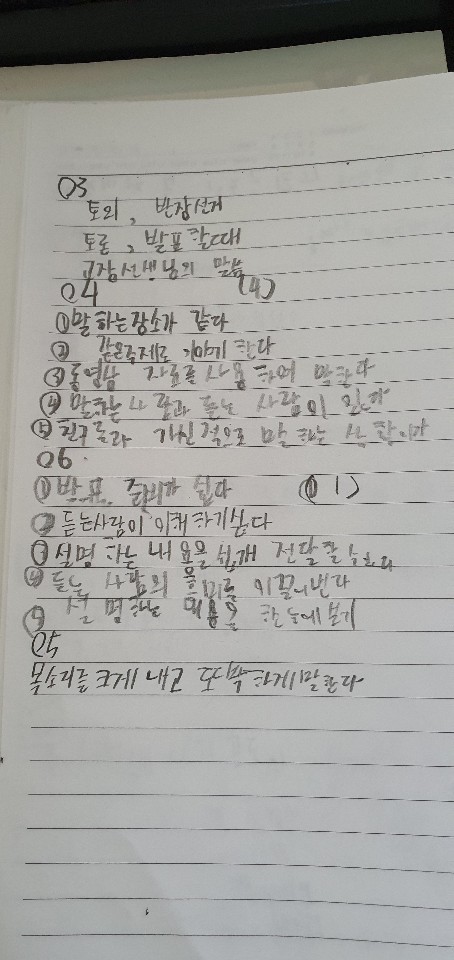 03
토의, 반장선거
토론, 발표 할때
교장선생님의 말씀
04 (4)
①말하는장소가 같다
② 같은주제로 이야기 한다
③동영상 자료를 사용 하여 말한다
④ 말하는 사람과 듣는 사람이 있다
⑤친구들과 개인적으로 말하는
06.
①발표 준비가 쉽다 (① 1)
② 듣는사람이 이해 하기쉽다
③설명 하는 내용을 쉽게 전달할수
④ 듣는 사람의 흥미를 이끌어낸다
⑤ 설명하는 내용을 한눈에보기
05
목소리를 크게 내고 또박 하게말한다